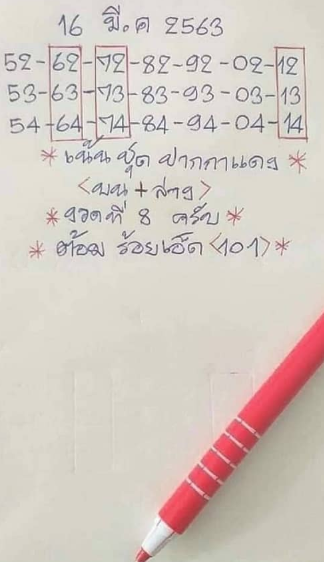 16 มี.ค 2563
52-62-72-82-92-02-12
53-63-73-83-93-03-13
54-64-74-84-94-04-14
* เน้น ชุด ปากกาแดง *
<บน + ล่าง>
* งวดที่ 8 ครับ *
* ต้อม ร้อยเอ็ด <101> *